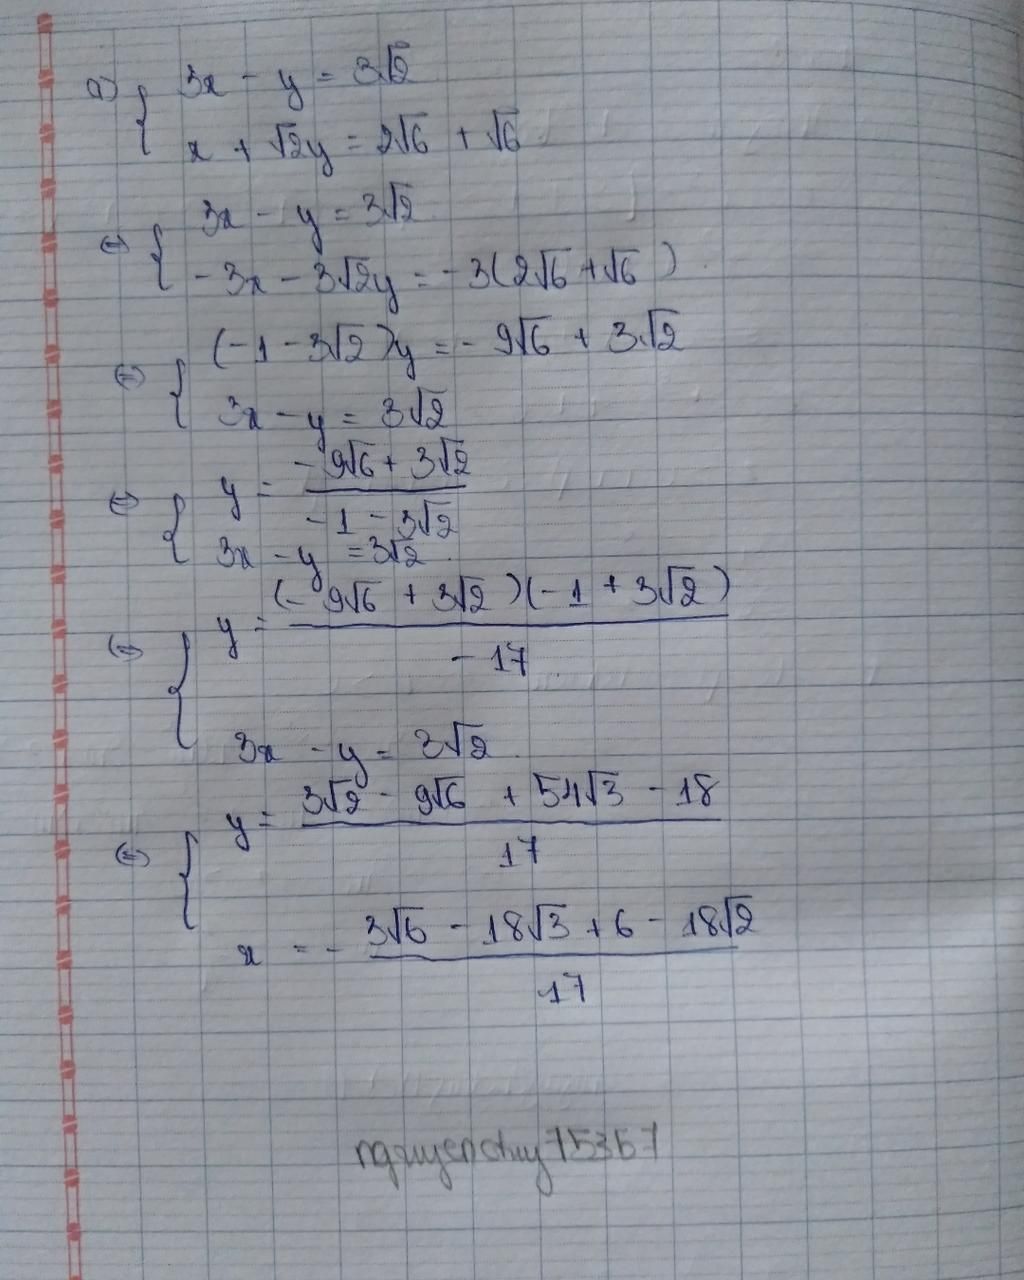 a) { 3x - y = 3√2
x + √2y = 2√6 + √6
(=) { 3x - y = 3√2
-3x - 3√2y = -3(2√6 + √6)
(=) { (-1 - 3√2)y = -9√6 + 3√2
3x - y = 3√2
(=) { y = (-9√6 + 3√2)/(-1 - 3√2)
3x - y = 3√2
(=) { y = (-9√6 + 3√2)(-1 + 3√2)/-17
3x - y = 3√2
(=) { y = (3√2 - 9√6 + 54√3 - 18)/17
x = -(3√6 - 18√3 + 6 - 18√2)/17
nguyenduy75367